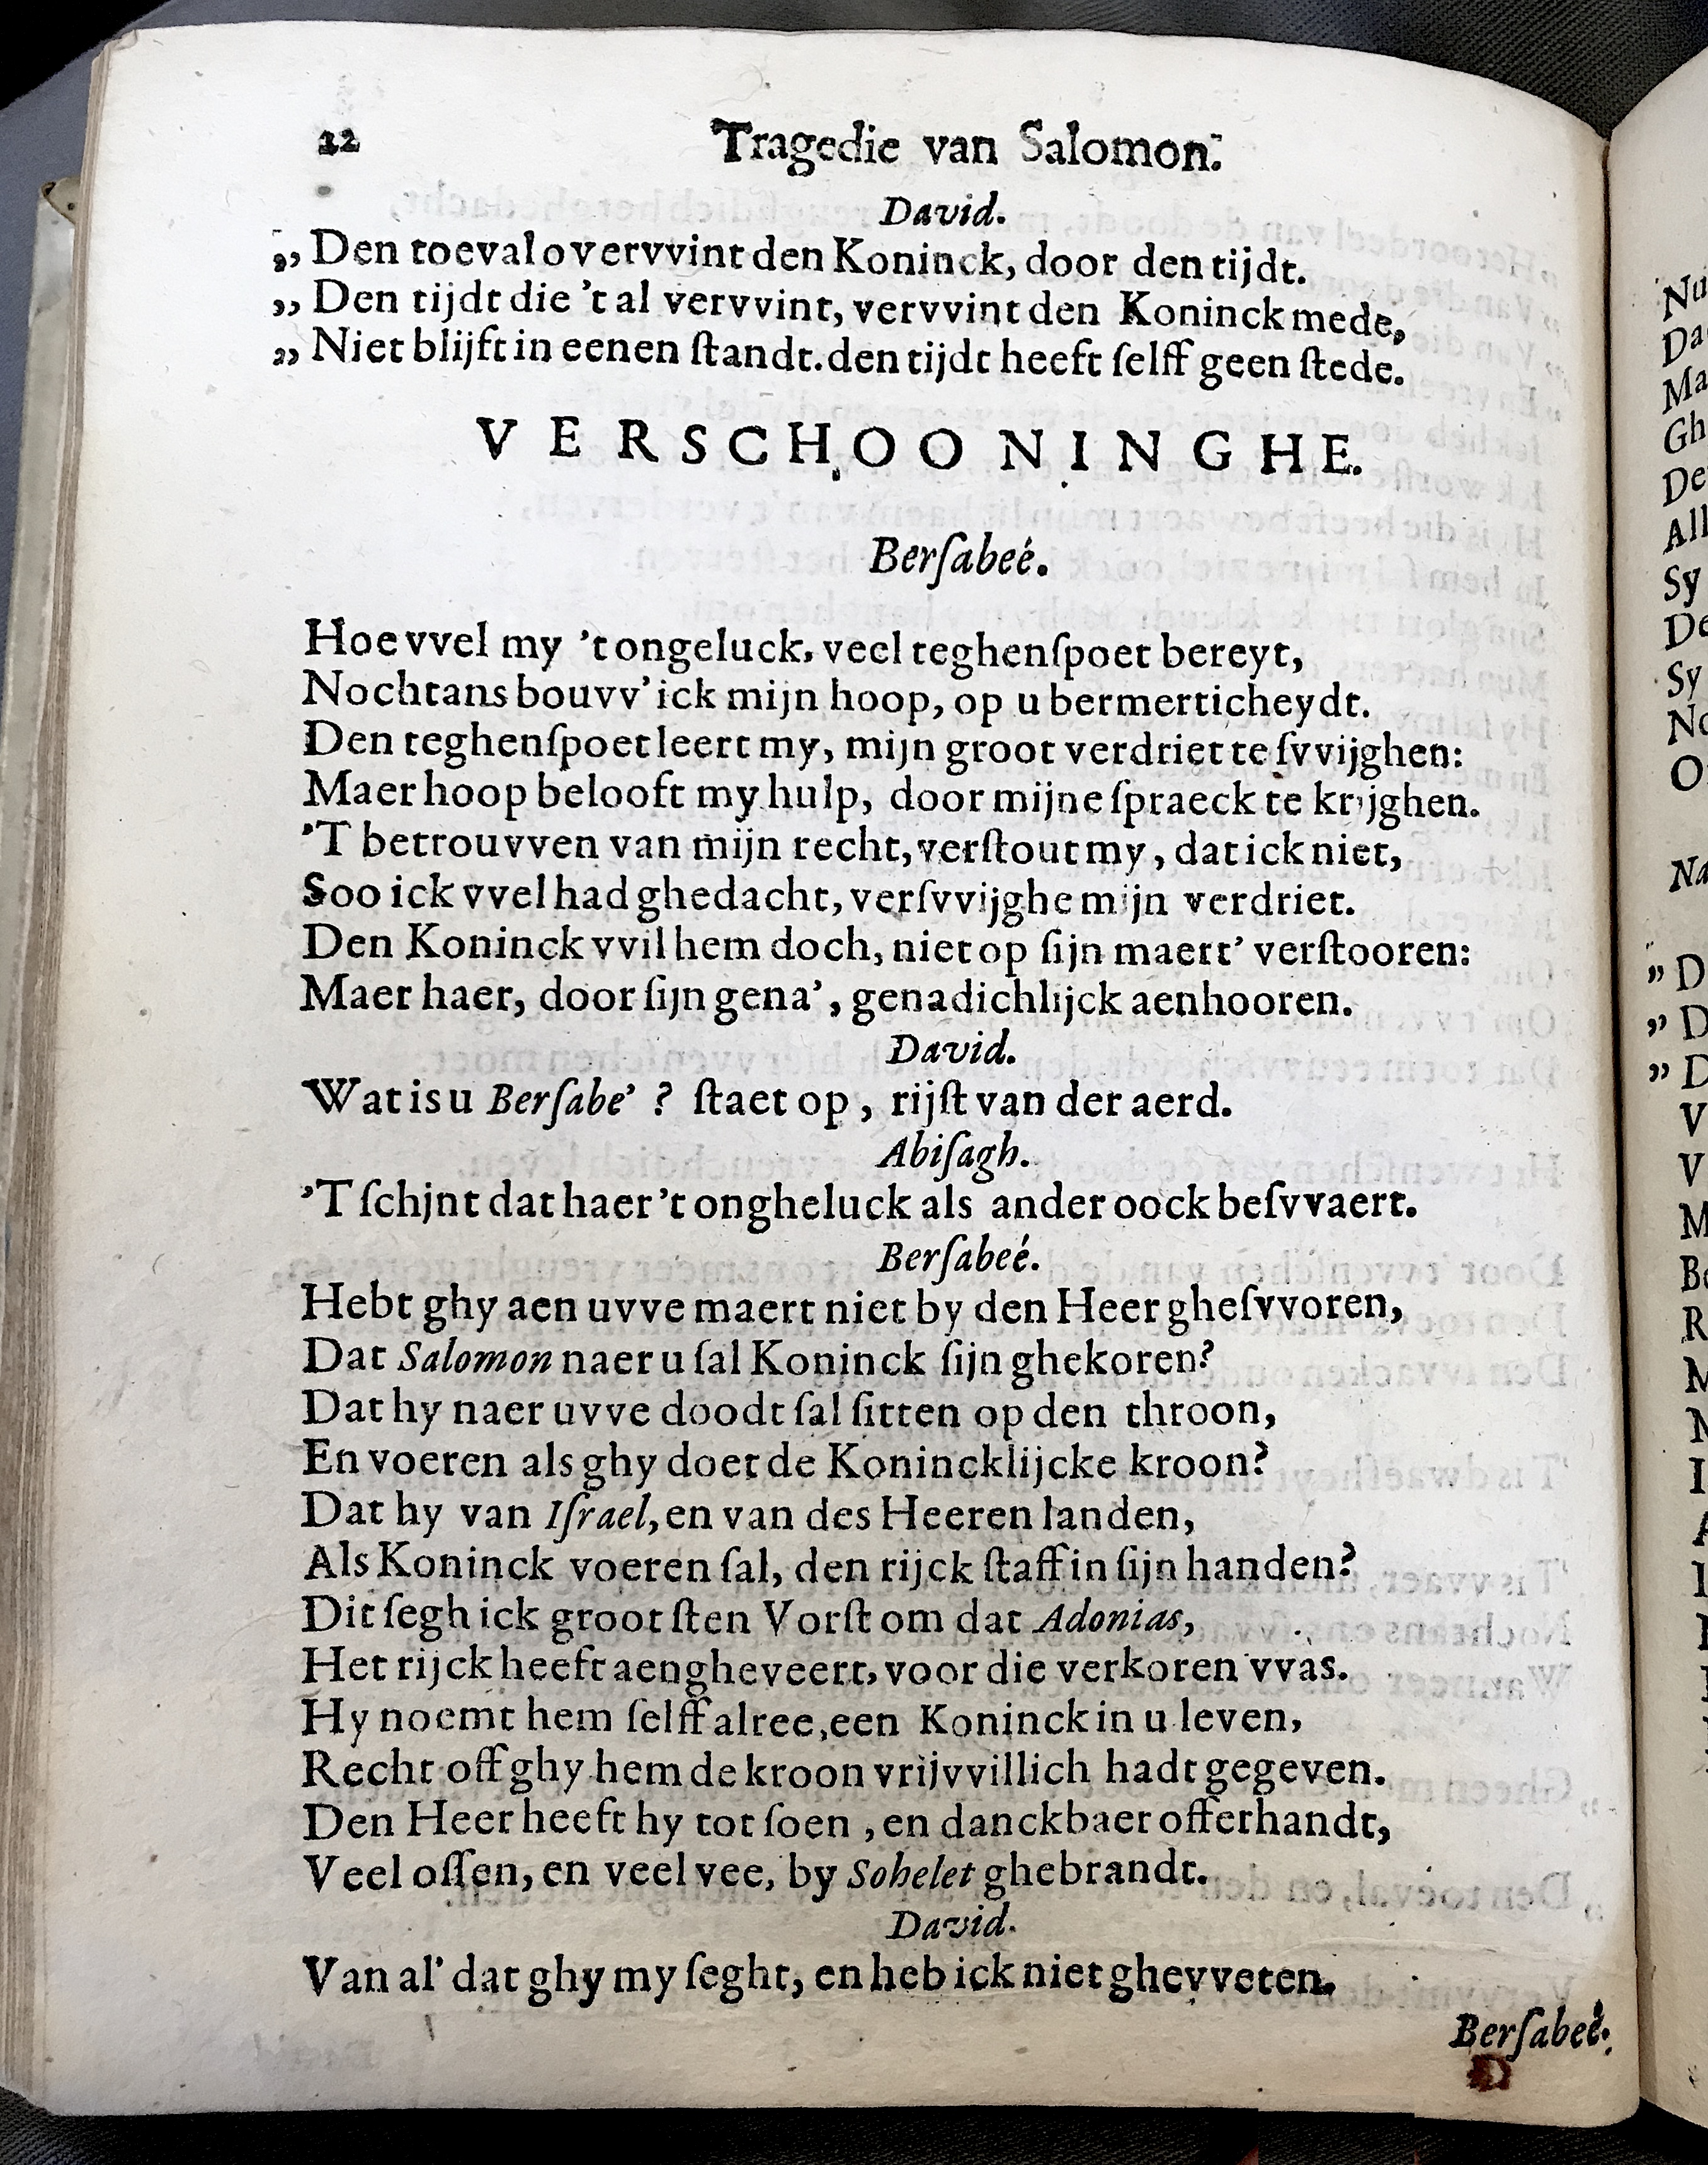 22 Tragedie van Salomon.
David.
„ Den toeval overvvint den Koninck, door den tijdt.
„ Den tijdt die 't al vervvint, vervvint den Koninck mede,
„ Niet blijft in eenen ſtandt. den tijdt heeft ſelff geen ſtede.
VERSCHOONINGHE.
Berſabeé.
Hoe vvel my 't ongeluck, veel teghenſpoet bereyt,
Nochtans bouvv' ick mijn hoop, op u bermerticheydt.
Den teghenſpoet leert my, mijn groot verdriet te ſvvijghen:
Maer hoop belooft my hulp, door mijne ſpraeck te krijghen.
'T betrouvven van mijn recht, verſtout my, dat ick niet,
Soo ick vvel had ghedacht, verſvvijghe mijn verdriet.
Den Koninck vvil hem doch, niet op ſijn maert' verſtooren:
Maer haer, door ſijn gena', genadichlijck aenhooren.
David.
Wat is u Berſabe' ? ſtaet op, rijſt van der aerd.
Abiſagh.
'T ſchjnt dat haer 't ongheluck als ander oock beſvvaert.
Berſabeé.
Hebt ghy aen uvve maert niet by den Heer gheſvvoren,
Dat Salomon naer u ſal Koninck ſijn ghekoren?
Dat hy naer uvve doodt ſal ſitten op den throon,
En voeren als ghy doet de Konincklijcke kroon?
Dat hy van Iſrael, en van des Heeren landen,
Als Koninck voeren ſal, den rijck ſtaff in ſijn handen?
Dit ſegh ick groot ſten Vorſt om dat Adonias,
Het rijck heeft aengheveert, voor die verkoren vvas.
Hy noemt hem ſelff alree, een Koninck in u leven,
Recht off ghy hem de kroon vrijvvillich hadt gegeven.
Den Heer heeft hy tot ſoen, en danckbaer offerhandt,
Veel oſſen, en veel vee, by Sohelet ghebrandt.
David.
Van al' dat ghy my ſeght, en heb ick niet ghevveten.
Berſabeé.
Nu
Da
Ma
Gh
De
All
Sy
De
Sy
No
Na
„ D
„ D
„ D
V
V
M
Be
R
M